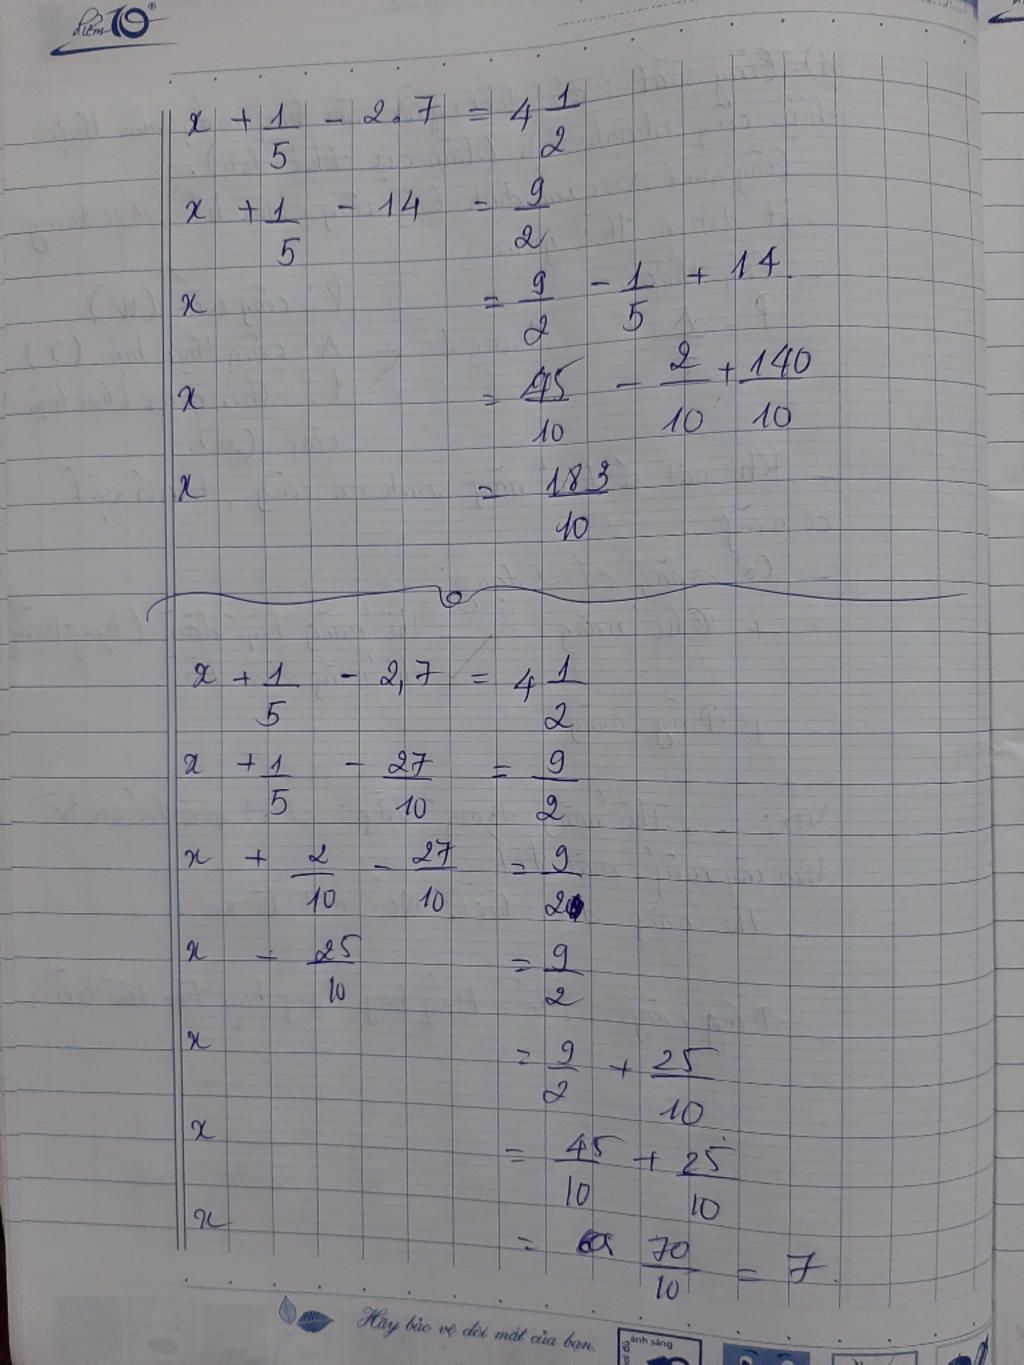 điểm 10
x + 1/5 - 2.7 = 4 1/2
x + 1/5 - 14 = 9/2
x = 9/2 - 1/5 + 14
x = 45/10 - 2/10 + 140/10
x = 183/10
x + 1/5 - 2,7 = 4 1/2
x + 1/5 - 27/10 = 9/2
x + 2/10 - 27/10 = 9/2
x - 25/10 = 9/2
x = 9/2 + 25/10
x = 45/10 + 25/10
x = 70/10 = 7
Hãy bảo vệ đôi mắt của bạn.
ánh sáng